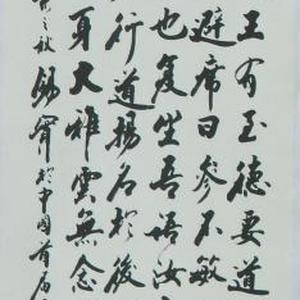 王有至德要道
避席曰参不敏
也复坐吾语汝
行道揚名於後
身大雅雲無念
之秋 於中國首届